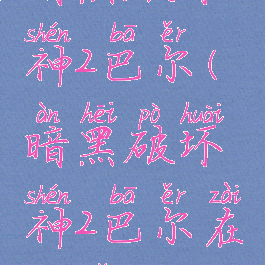 shén bā ěr
神2巴尔(
àn hēi pò huài
暗黑破坏
shén bā ěr zài
神2巴尔在